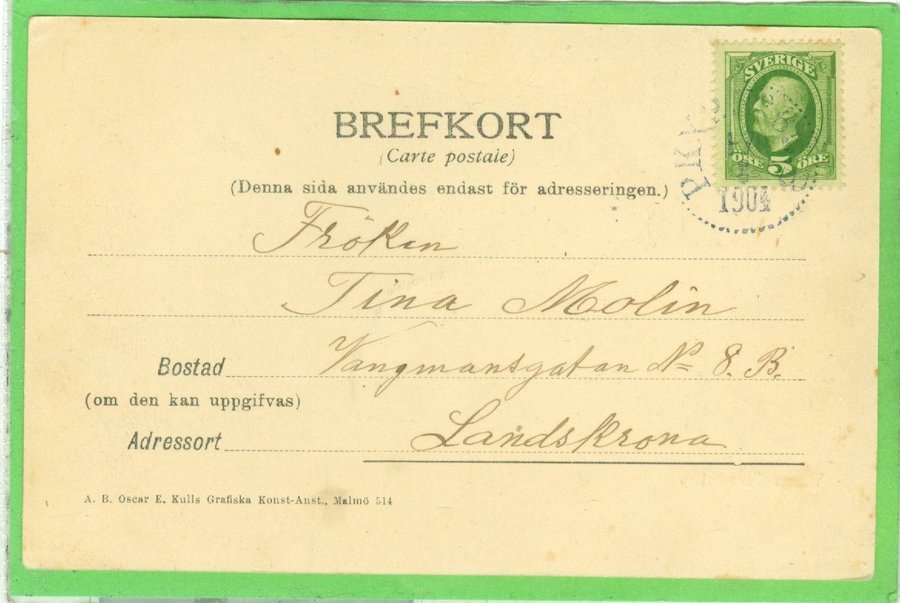 SVERIGE
ÖRE 5 ÖRE
1904
BREFKORT
(Carte postale)
(Denna sida användes endast för adresseringen.)
Fröken
Tina Molin
Bostad Vangmansgatan No 8. B.
(om den kan uppgifvas)
Adressort Landskrona
A. B. Oscar E. Kulls Grafiska Konst-Anst., Malmö 514